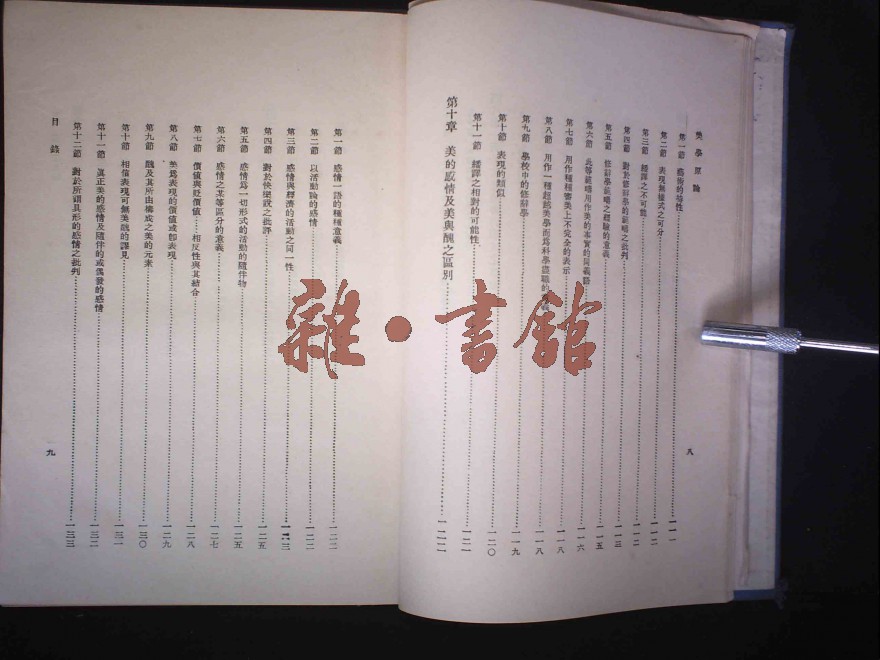 美學原論
第一節 藝術的特性……一一一
第二節 表現無樣式之可分……一一二
第三節 繙譯之不可能……一一二
第四節 對於修辭學的範疇之批判……一一三
第五節 修辭學範疇之經驗的意義……一一五
第六節 此等範疇用作美的事實的同義語……一一六
第七節 用作種種審美上不完全的表示……一一八
第八節 用作一種超越美學而爲科學盡職的……一一八
第九節 學校中的修辭學……一一九
第十節 表現的類似……一二〇
第十一節 繙譯之相對的可能性……一二一
第十章 美的感情及美與醜之區別……一二二
八
第一節 感情一語的種種意義……一二二
第二節 以活動論的感情……一二二
第三節 感情與經濟的活動之同一性……一二三
第四節 對於快樂說之批評……一二五
第五節 感情爲一切形式的活動的隨伴物……一二五
第六節 感情之某等區分的意義……一二七
第七節 價值與貶價值……相反性與其結合……一二八
第八節 美爲表現的價值或卽表現……一二九
第九節 醜及其所由構成之美的元素……一三〇
第十節 相信表現可無美醜的謬見……一三一
第十一節 眞正美的感情及隨伴的或偶發的感情……一三二
第十二節 對於所謂具形的感情之批判……一三三
目錄
九
雜·書館